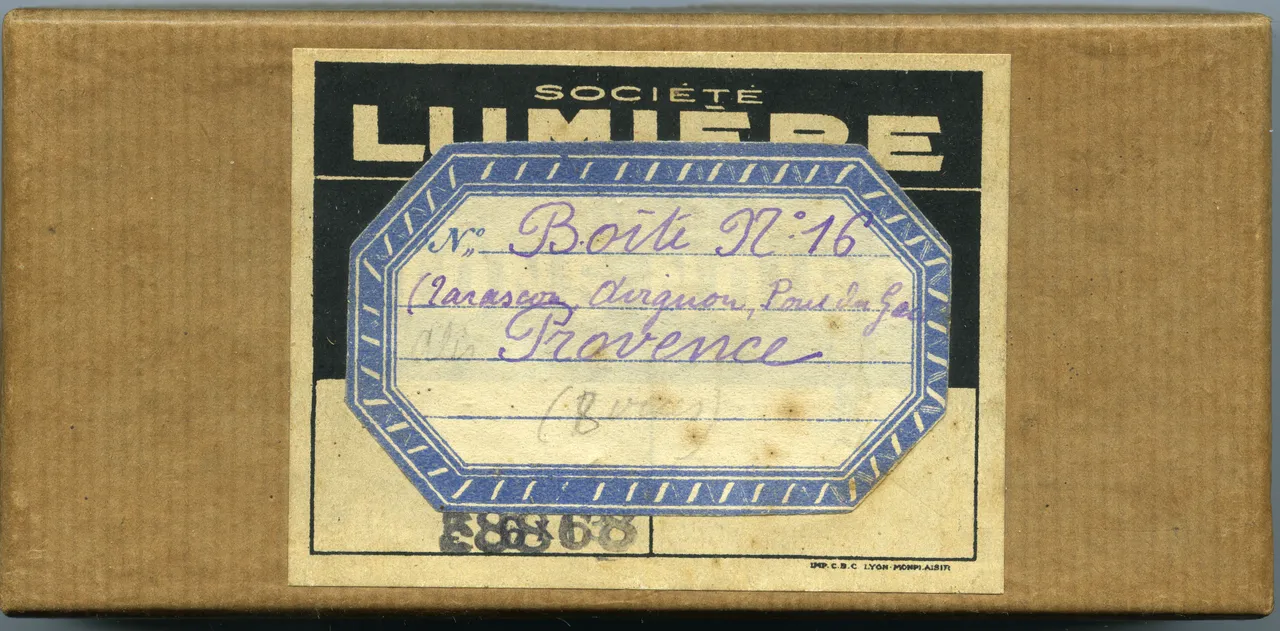 SOCIÉTÉ
LUMIÈRE
N° Boîte N° 16
(Tarascon, Avignon, Pont du Gar
Provence
IMP. C.B.C LYON-MONPLAISIR